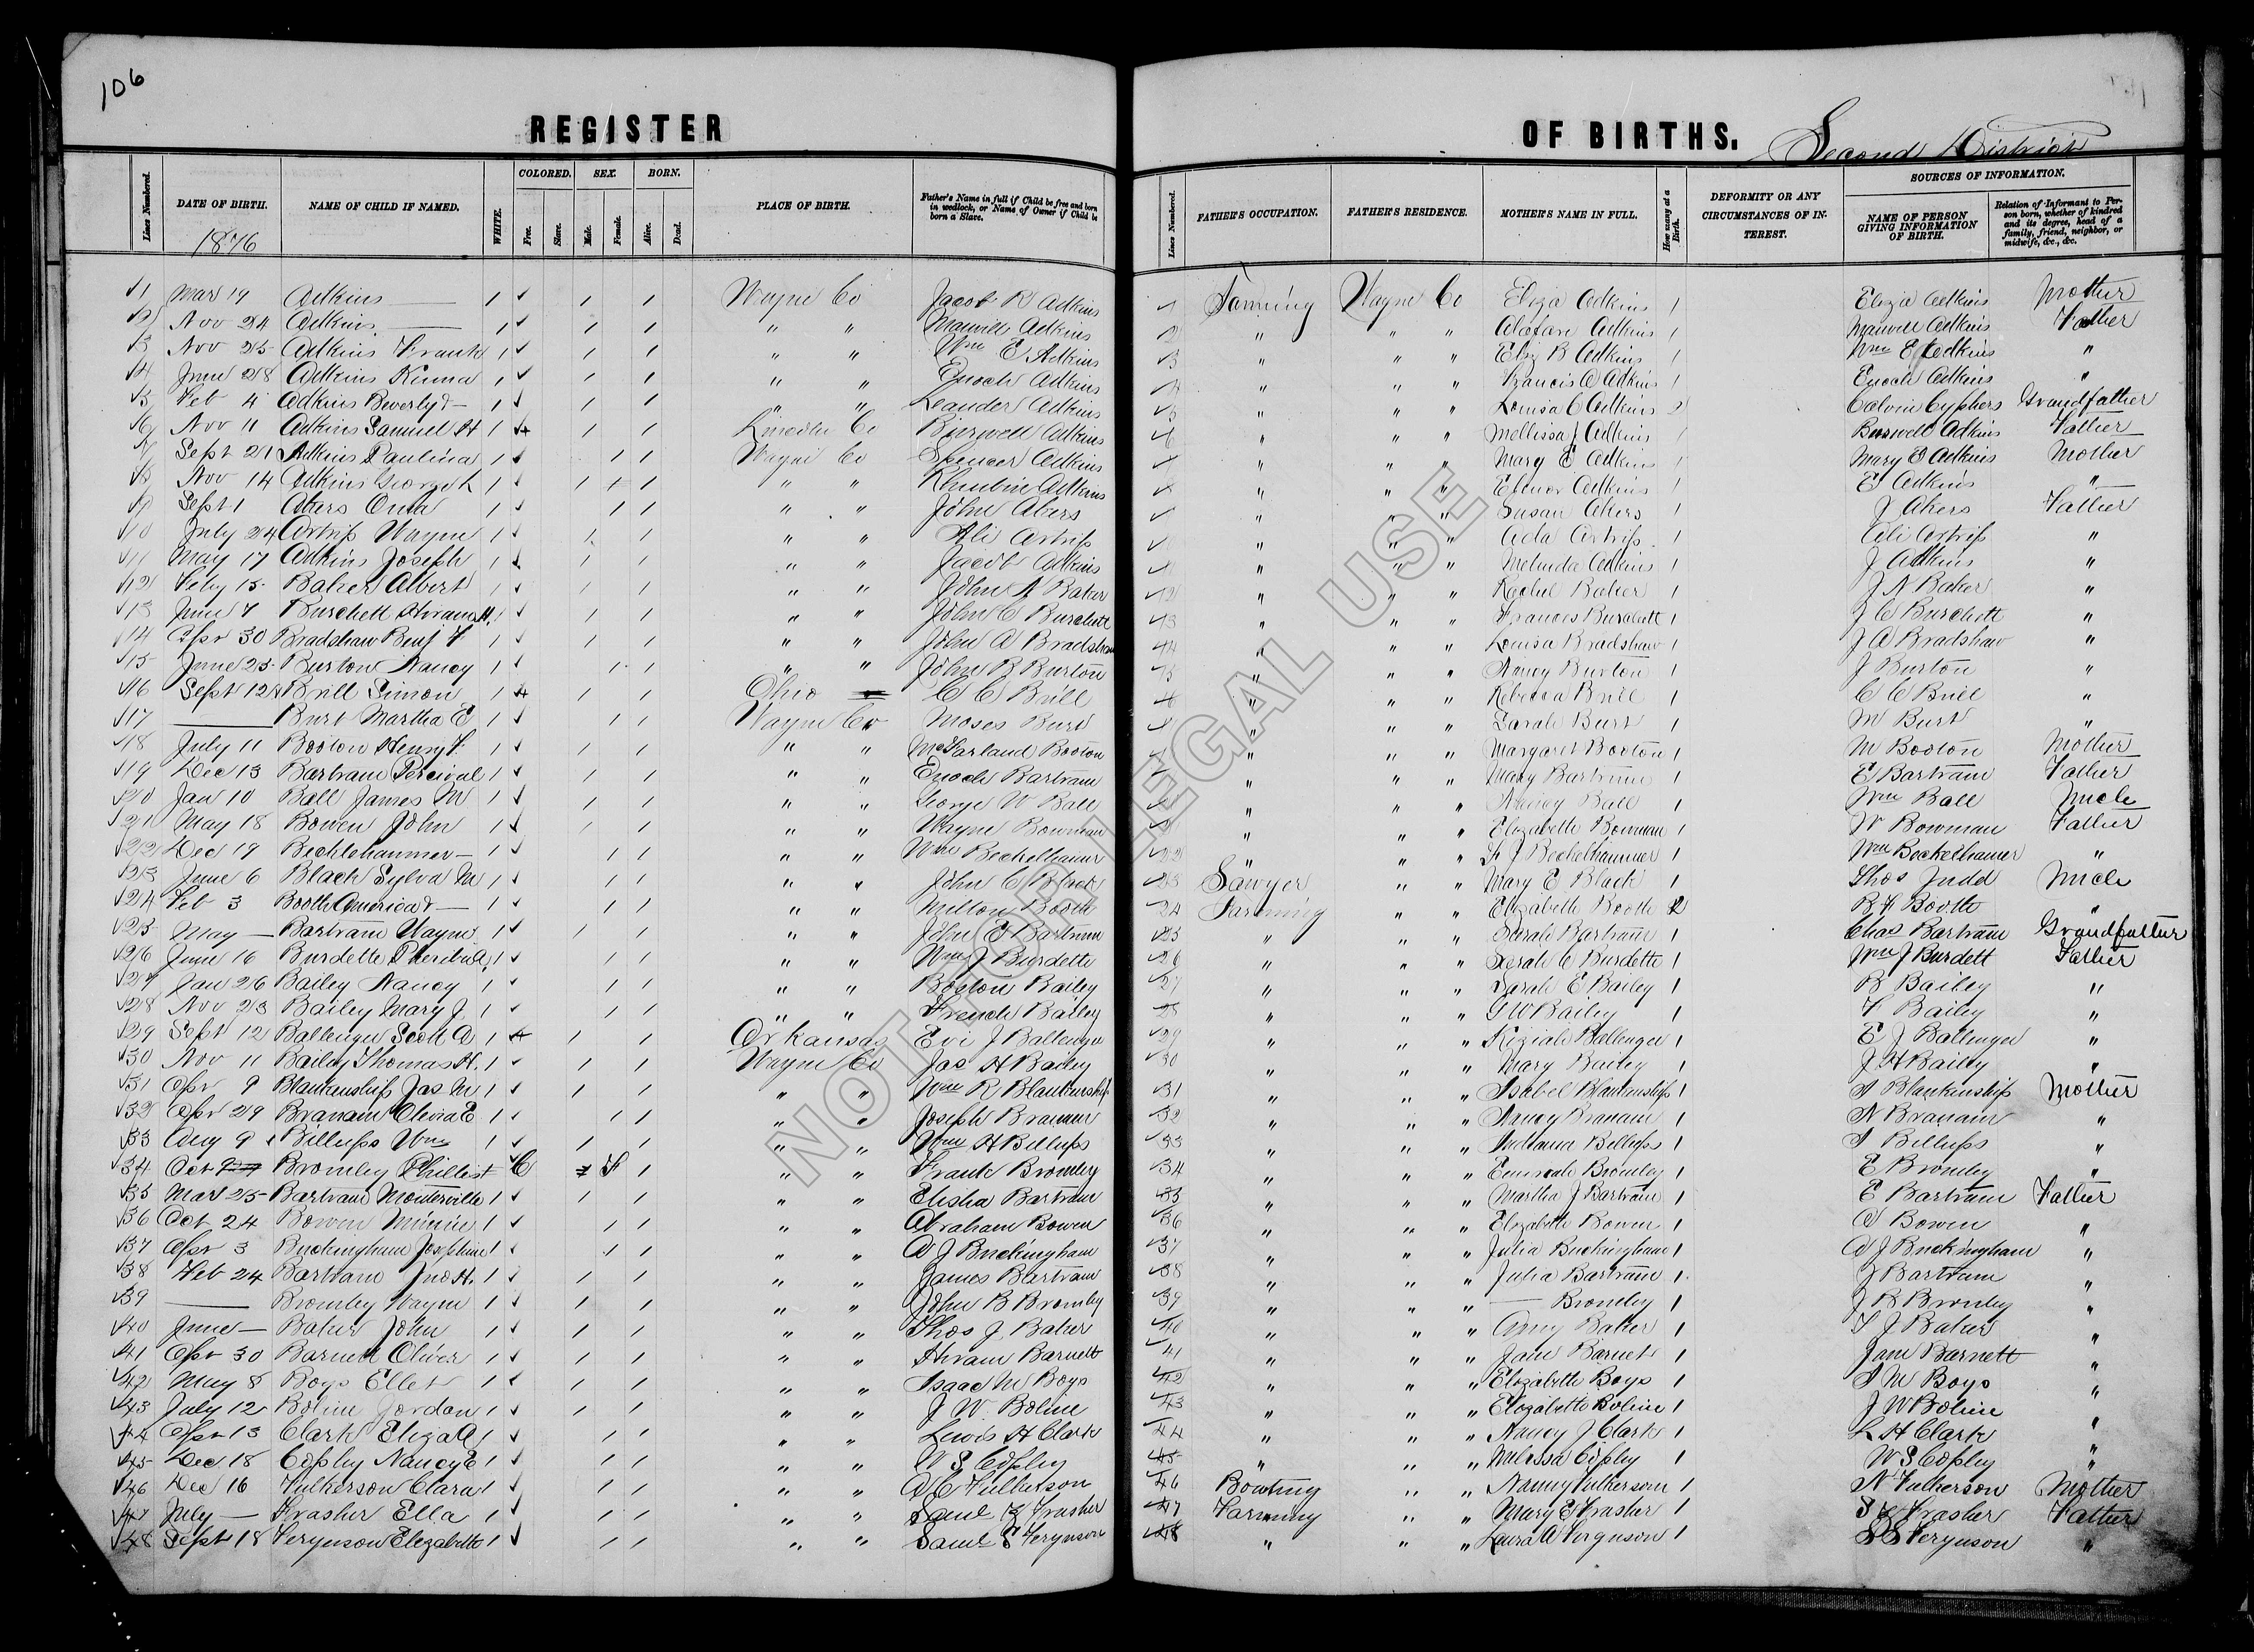 106
REGISTER OF BIRTHS. Second District
Lines Numbered. DATE OF BIRTH. NAME OF CHILD IF NAMED. WHITE. COLORED. Free. Slave. SEX. Male. Female. BORN. Alive. Dead. PLACE OF BIRTH. Father's Name in full if Child be free and born in wedlock, or Name of Owner if Child be born a Slave. Lines Numbered. FATHER'S OCCUPATION. FATHER'S RESIDENCE. MOTHER'S NAME IN FULL. How many at a Birth. DEFORMITY OR ANY CIRCUMSTANCES OF INTEREST. SOURCES OF INFORMATION. NAME OF PERSON GIVING INFORMATION OF BIRTH. Relation of Informant to Person born, whether of kindred and its degree, head of a family, friend, neighbor, or midwife, &c., &c.
1876
1 Mar 19 Adkins — 1 ✓ 1 1 Wayne Co Jacob R Adkins Farming Wayne Co Eliza Adkins 1 Eliza Adkins Mother
2 Nov 24 Adkins — 1 ✓ 1 1 " " Adkins 2 " " " Adkins 1 Adkins Father
3 Nov 25 Adkins Frank 1 ✓ 1 1 " " Wm E Adkins 3 " " " Eliz B Adkins 1 Wm E Adkins "
4 June 28 Adkins Kinna 1 ✓ 1 1 " " Enoch Adkins 4 " " " Francis Adkins 1 Enoch Adkins "
5 Feb 4 Adkins Beverly & — 1 ✓ 1 1 " " Leander Adkins 5 " " " Louisa C Adkins 2 Calvin Cyphers Grandfather
6 Nov 11 Adkins Samuel H 1 1 1 Lincoln Co Burwell Adkins 6 " " " Mellissa J Adkins 1 Burwell Adkins Father
7 Sept 21 Adkins Paulina 1 ✓ 1 1 Wayne Co Spencer Adkins " " " Mary E Adkins 1 Mary E Adkins Mother
8 Nov 14 Adkins George L 1 ✓ 1 1 " " Adkins " " " Elenor Adkins 1 E Adkins "
9 Sept 1 Akers 1 ✓ 1 1 " " John Akers " " " Susan Akers 1 J Akers Father
10 July 24 Artrip Wayne 1 ✓ 1 1 " " Ali Artrip " " " Ada Artrip 1 Ali Artrip "
11 May 17 Adkins Joseph 1 ✓ 1 1 " " Jacob Adkins " " " Melinda Adkins 1 J Adkins "
12 Feby 15 Baker Albert 1 ✓ 1 1 " " John N Baker 12 " " " Rachel Baker 1 J N Baker "
13 June 7 Burchett Hiram H. 1 ✓ 1 1 " " John C Burchett 13 " " " Frances Burchett 1 J C Burchett "
14 Apr 30 Bradshaw Benj F 1 ✓ 1 1 " " John A Bradshaw 14 " " " Louisa Bradshaw 1 J A Bradshaw "
15 June 25 Burton Nancy 1 ✓ 1 1 " " John B Burton 15 " " " Nancy Burton 1 J Burton "
16 Sept 12 Brill Simon 1 1 1 Ohio C C Brill " " " Rebecca Brill 1 C C Brill "
17 — Burt Martha E 1 ✓ 1 1 Wayne Co Moses Burt " " " Sarah Burt 1 M Burt "
18 July 11 Booton Henry F 1 ✓ 1 1 " " McFarland Booton " " " Margaret Booton 1 M Booton Mother
19 Dec 13 Bartram Percival 1 ✓ 1 1 " " Enoch Bartram " " " Mary Bartram 1 E Bartram Father
20 Jan 10 Ball James M 1 ✓ 1 1 " " George W Ball " " " Nancy Ball 1 Wm Ball Uncle
21 May 18 Bowen John 1 ✓ 1 1 " " Wayne Bowman " " " Elizabeth Bowman 1 W Bowman Father
22 Dec 19 Becklehammer — 1 ✓ 1 1 " " Wm Beckelhamer 22 " " " J Beckelhammer 1 Wm Beckelhamer "
23 June 6 Black Sylva M 1 ✓ 1 1 " " John C Black 23 Sawyer " " Mary E Black 1 Thos Judd Uncle
24 Feb 3 Booth America & — 1 ✓ 1 1 " " Milton Booth 24 Farming " " Elizabeth Booth 2 R F Booth "
25 May — Bartram Wayne 1 ✓ 1 1 " " John E Bartram 25 " " " Sarah Bartram 1 Chas Bartram Grandfather
26 June 16 Burdette 1 ✓ 1 1 " " Wm J Burdette 26 " " " Sarah C Burdette 1 Wm J Burdett Father
27 Jan 26 Bailey Nancy 1 ✓ 1 1 " " Booton Bailey 27 " " " Sarah E Bailey 1 B Bailey "
28 Nov 23 Bailey Mary J. 1 ✓ 1 1 " " French Bailey 28 " " " Bailey 1 F Bailey "
29 Sept 12 Ballenger Scott A 1 1 1 Arkansas Evi J Ballenger 29 " " " Keziah Ballenger 1 E J Ballenger "
30 Nov 11 Bailey Thomas H. 1 ✓ 1 1 Wayne Co Jas H Bailey 30 " " " Mary Bailey 1 J H Baily "
31 Apr 9 Blankenship Jas M 1 ✓ 1 1 " " Wm R Blankenship 31 " " " Isabel Blankenship 1 I Blankinship Mother
32 Apr 29 Branam E 1 ✓ 1 1 " " Joseph Branam 32 " " " Nancy Branam 1 N Branam "
33 Aug 9 Billups Wm 1 ✓ 1 1 " " Wm H Billups 33 " " " Indiana Billups 1 I Billups "
34 Oct Bromley C F 1 " " Frank Bromley 34 " " " Bromley 1 E Bromley "
35 Mar 25 Bartram Monterville 1 ✓ 1 1 " " Elisha Bartram 35 " " " Martha J Bartram 1 E Bartram Father
36 Oct 24 Bowen Minnie 1 ✓ 1 1 " " Abraham Bowen 36 " " " Elizabeth Bowen 1 A Bowen "
37 Apr 3 Buckingham Josephine 1 ✓ 1 1 " " A J Buckingham 37 " " " Julia Buckingham 1 A J Buckingham "
38 Feb 24 Bartram Jno H. 1 ✓ 1 1 " " James Bartram 38 " " " Julia Bartram 1 J Bartram "
39 — Bromley Wayne 1 ✓ 1 1 " " John B Bromley 39 " " " — Bromley 1 J B Bromley "
40 June — Baker John 1 ✓ 1 1 " " Thos J Baker 40 " " " Amy Baker 1 T J Baker "
41 Apr 30 Barnett Oliver 1 ✓ 1 1 " " Hiram Barnett 41 " " " Jane Barnett 1 Jane Barnett "
42 May 8 Boys Ellet 1 ✓ 1 1 " " Isaac M Boys 42 " " " Elizabeth Boys 1 I M Boys "
43 July 12 Boline Jordan 1 ✓ 1 1 " " J W. Boline 43 " " " Elizabeth Boline 1 J W Boline "
44 Apr 13 Clark Eliza A 1 ✓ 1 1 " " Lewis H Clark 44 " " " Nancy J Clark 1 L H Clark "
45 Dec 18 Copley Nancy E 1 ✓ 1 1 " " W S Copley 45 " " " Melissa Copley 1 W S Copley "
46 Dec 16 Fulkerson Clara 1 ✓ 1 1 " " A C Fulkerson 46 Boating " " Nancy Fulkerson 1 N Fulkerson Mother
47 July — Frasher Ella 1 ✓ 1 1 " " Saml K Frasher 47 Farming " " Mary E Frasher 1 S K Frasher Father
48 Sept 18 Ferguson Elizabeth 1 ✓ 1 1 " " Saml S Ferguson 48 " " " Laura A Ferguson 1 S S Ferguson "
NOT FOR LEGAL USE